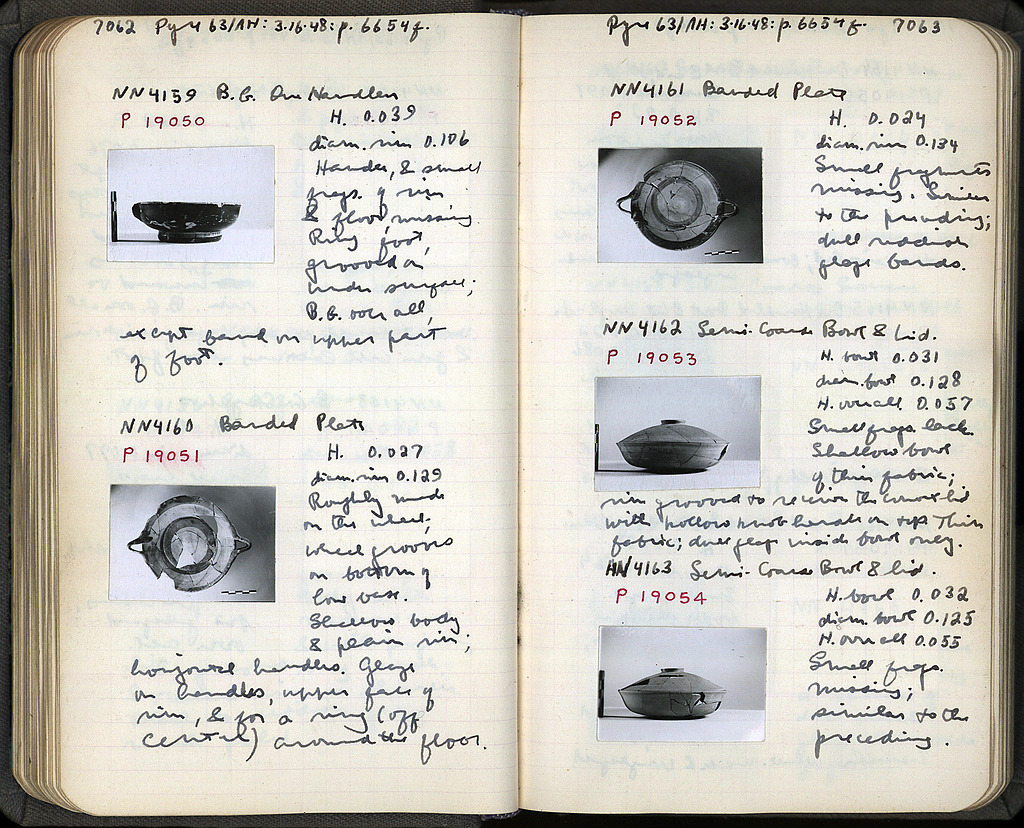 7062 Pyre 63/ΛH: 3·16·48: p. 6654f.
NN4159 B.G. One Handler
P 19050
H. 0.039
diam. rim 0.106
Handle, & small
frags. of rim
& floor, missing
Ring foot,
grooved on
under surface;
B.G. over all,
except band on upper part
of foot.
NN4160 Banded Plate
P 19051
H. 0.027
diam. rim 0.129
Roughly made
on the wheel;
wheel grooves
on bottom of
low base.
Shallow body
& plain rim;
horizontal handles. Glaze
on handles, upper face of
rim, & for a ring (off
center) around the floor.
Pyre 63/ΛH: 3·16·48: p. 6654f. 7063
NN4161 Banded Plate
P 19052
H. 0.024
diam. rim 0.134
Small fragments
missing. Similar
to the preceding;
dull reddish
glaze bands.
NN4162 Semi-Coarse Bowl & Lid.
P 19053
H. bowl 0.031
diam. bowl 0.128
H. overall 0.057
Small frags. lack.
Shallow bowl
of thin fabric;
rim grooved to receive the convex lid
with hollow knob handle on top. Thin
fabric; dull glaze inside bowl only.
NN4163 Semi-Coarse Bowl & Lid.
P 19054
H. bowl 0.032
diam. bowl 0.125
H. overall 0.055
Small frags.
missing;
similar to the
preceding.